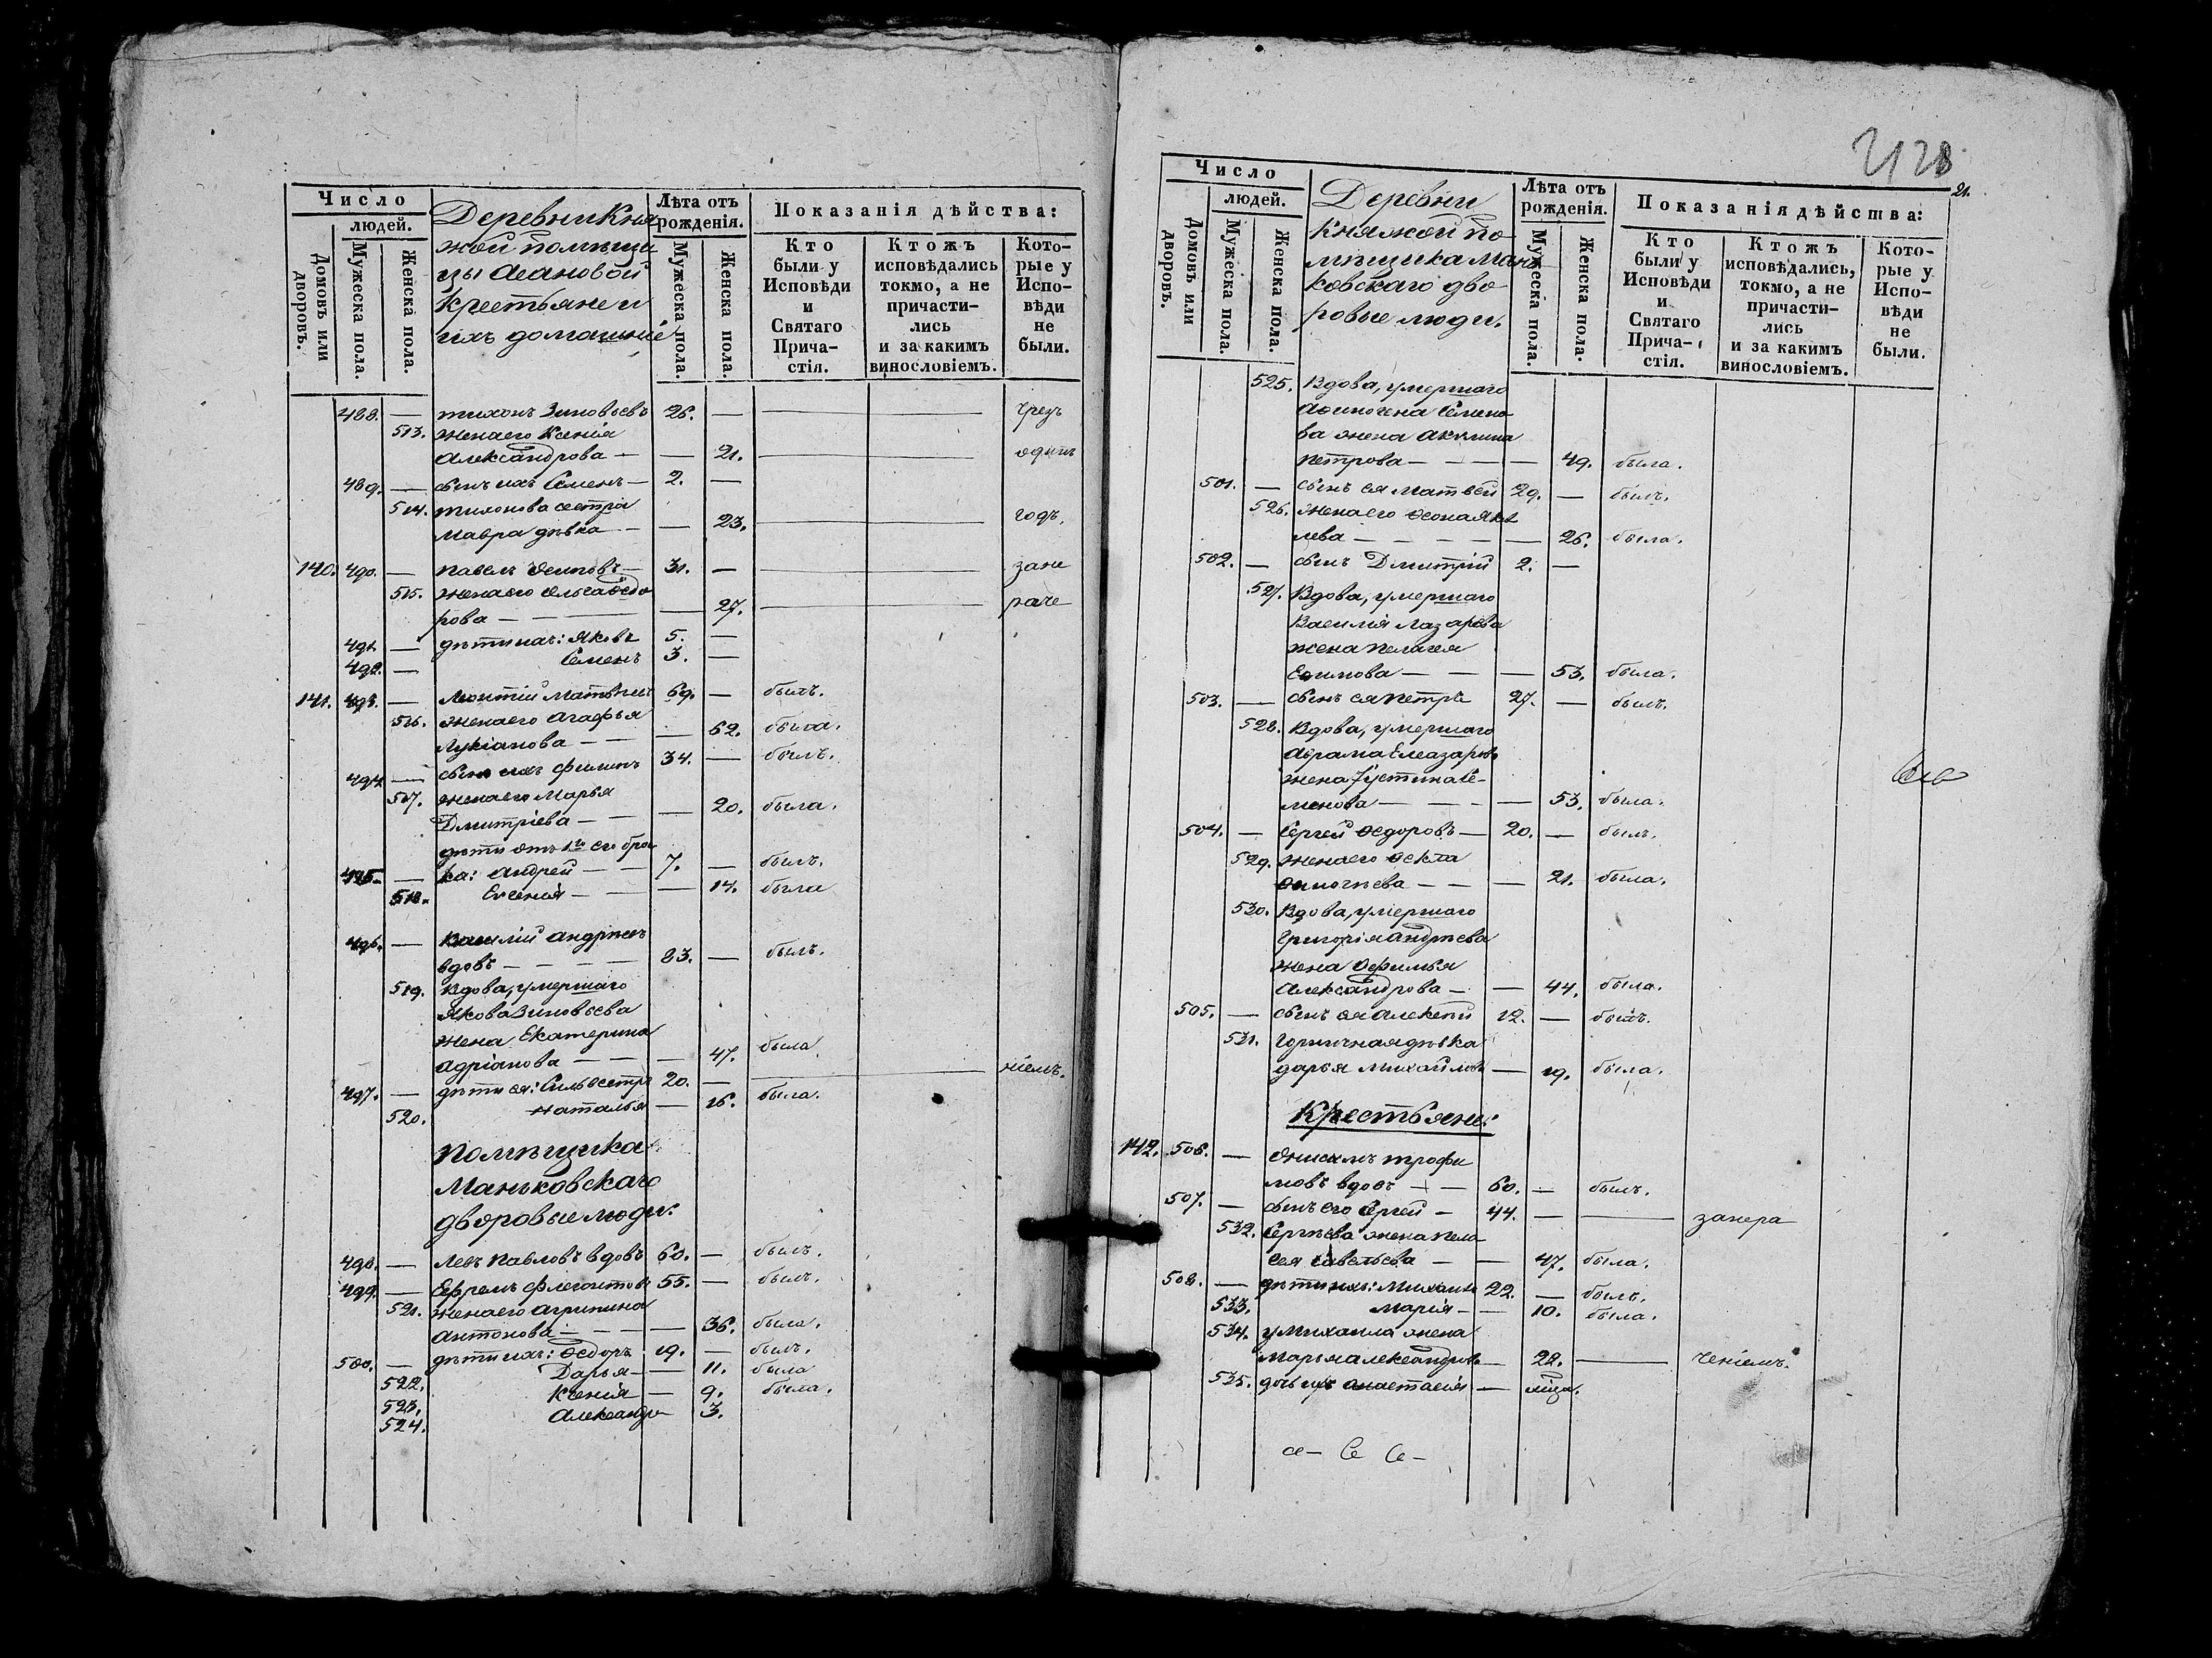 Число
людей.
Домовъ или дворовъ.
Мужеска пола.
Женска пола.
Деревни Кня
жой помѣщи
цы Асановой
Крестьяне и
ихъ домашніе
Лѣта отъ рожденія.
Мужеска пола.
Женска пола.
Показанія дѣйства:
Кто были у Исповѣди и Святаго Прича- стія.
Ктожъ исповѣдались токмо, а не причасти- лись и за какимъ винословіемъ.
Кото- рые у Испо- вѣди не были.
488. — Тихонъ Зиновьевъ 26. — — чрезъ
513. жена его Ксенія
Александрова — — 21. — одинъ
489. — сынъ ихъ Семенъ — 2. —
514. Тихонова сестра
Мавра дѣвка — — 23. — годъ,
140. 490. — Павелъ Осиповъ — 31. — — зане
515. жена его Ельса Ѳедо
рова — — — — 27. — раче
491. — дѣти ихъ: Яковъ 5. —
492. — Семенъ 3. —
141. 493. — Леонтій Матвѣевъ 69. — былъ.
516. жена его Агафья
Лукіанова — — — 62. была.
494. — сынъ ихъ Филипъ 34. — былъ.
517. жена его Марья
Дмитріева — — — 20. была.
дѣти отъ 1го его бра
ка: Андрей — — 7. — былъ.
495. —
518. Евгенія — — 14. была
496. — Василій Андреевъ
вдовъ — — — — 83. — былъ.
519. Вдова, умершаго
Якова Зиновьева
жена Екатерина
Адріанова — — — 47. была
497. — дѣти ея: Сильвестръ 20. — — ніемъ.
520. Наталья — 16. была.
Помѣщика
Маньковскаго
дворовые люди.
498. — Левъ Павловъ вдовъ 60. — былъ.
499. — Ефремъ Флегонтовъ 55. — былъ.
521. жена его Агрипина
Антонова — — — 36. была.
500. — дѣти ихъ: Ѳедоръ 19. — былъ.
522. Дарья — — 11. была
523. Ксенія — 9. была.
524. Александра 3.
2128
21.
Число
людей.
Домовъ или дворовъ.
Мужеска пола.
Женска пола.
Деревни
Княжой по-
мѣщика Мань-
ковскаго дво
ровые люди.
Лѣта отъ рожденія.
Мужеска пола.
Женска пола.
Показанія дѣйства:
Кто были у Исповѣди и Святаго Прича- стія.
Ктожъ исповѣдались, токмо, а не причасти- лись и за какимъ винословіемъ.
Кото- рые у Испо- вѣди не были.
525. Вдова, умершаго
Аѳиногена Семено
ва жена Акилина
Петрова — — — — 49. была.
501. — сынъ ея Матвѣй 29. — былъ.
526. жена его Ѳеона Яков
лева — — — — 26. была.
502. — сынъ Дмитрій 2. —
527. Вдова, умершаго
Василія Лазарева
жена Пелагея
Ефимова — — — 53. была.
503. — сынъ ея Петръ 27. — былъ.
528. Вдова, умершаго
Абрама Елеазарова
жена Іустина Се-
менова — — — 53. была.
504. — Сергей Ѳедоровъ — 20. — былъ.
529. жена его Ѳекла
— — — 21. была.
530. Вдова, умершаго
Григорія Андреева
жена Ѳефилья
Александрова — — 44. была.
505. — сынъ ея Алексѣй 12. — былъ.
531. Горничная дѣвка
Дарья Михайлова — 19. была.
Крестьяне:
142. 506. — Онисимъ Трофи
мовъ вдовъ — — 60. — былъ.
507. — сынъ его Сергей — 44. — — занера
532. Сергѣева жена Пела
гея Савельева — — 47. была.
508. — дѣти ихъ: Михаилъ 22. — былъ.
533. Марія — — 10. была.
534. у Михаила жена
Марья Александрова — 22. — ченіемъ.
535. дочь ихъ Анастасія — мѣсца.